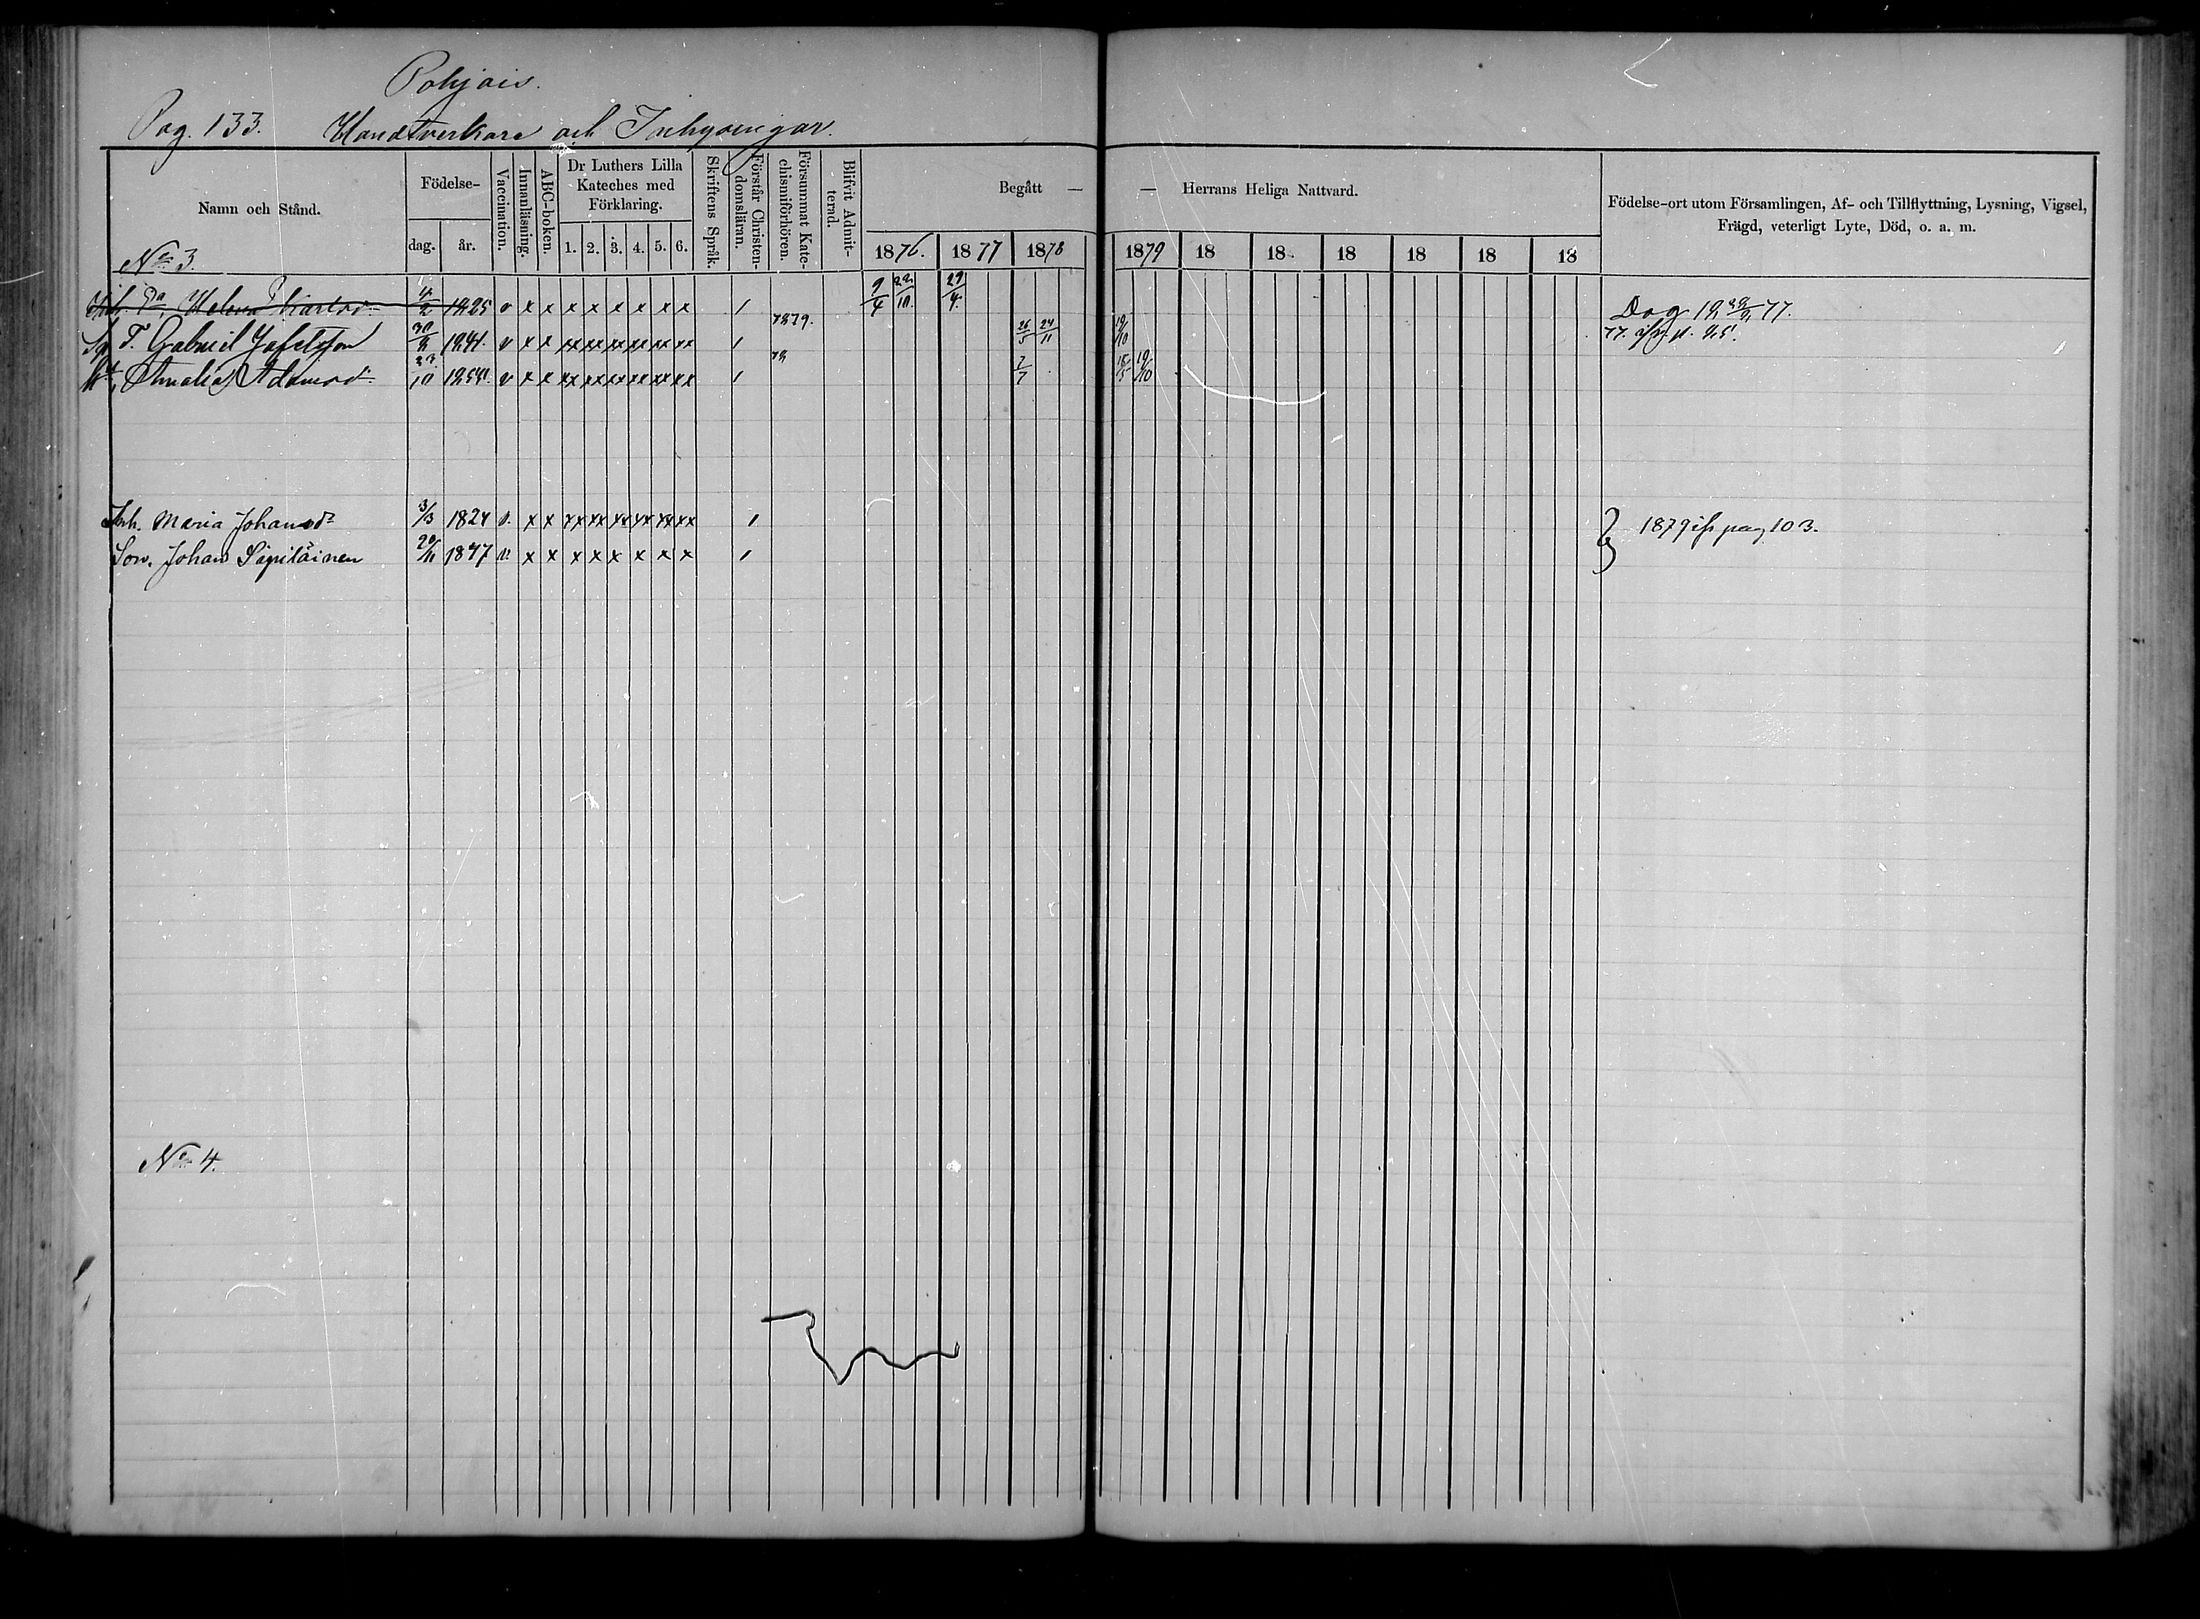 Pohjois.
Pag. 133. Handtverkare och Inhysingar.
Namn och Stånd. Födelse- dag. år. Vaccination. Innanläsning. ABC-boken. Dr Luthers Lilla Kateches med Förklaring. 1. 2. 3. 4. 5. 6. Skriftens Språk. Förstår Christendomsläran. Försummat Katechismiförhören. Blifvit Admitterad. Begått — — Herrans Heliga Nattvard. 1876. 1877 1878 1879 18 18 18 18 18 18 Födelse-ort utom Församlingen, Af- och Tillflyttning, Lysning, Vigsel, Frägd, veterligt Lyte, Död, o. a. m.
No 3.
Helena Karlsd. 4/2 1825 v x x x x x x x x / 9/4 22/10 29/4. Dog 77.
T. Gabriel 1841. v x x xx xx xx xx xx xx / 1879. 26/5 24/11 19/10 77.
Amalia Adamsd. 23/10 v x x xx xx xx xx xx xx / 78 7/7 18/5 19/10
Inh. Maria Johansdr 3/3 1824 v. x x xx xx xx xx xx xx / 1879 pag 103.
Son. Johan Sipiläinen 20/11 1847 v. x x x x x x x x /
No 4.